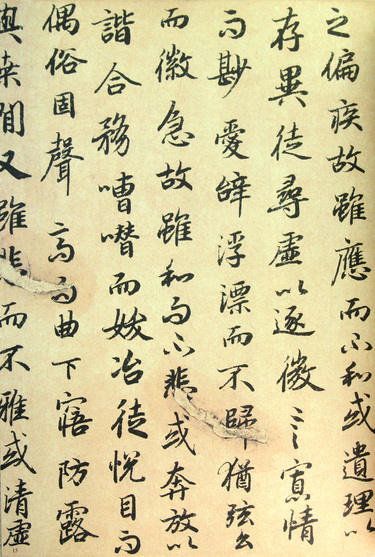 之偏疾故雖應而不和或遺理以
存異徒尋虛以逐微言寡情
而尠愛辭浮漂而不歸猶弦么
而徽急故雖和而不悲或奔放以
諧合務嘈囋而妖冶徒悅目而
偶俗固聲高而曲下寤防露
與桑間又雖悲而不雅或清虛